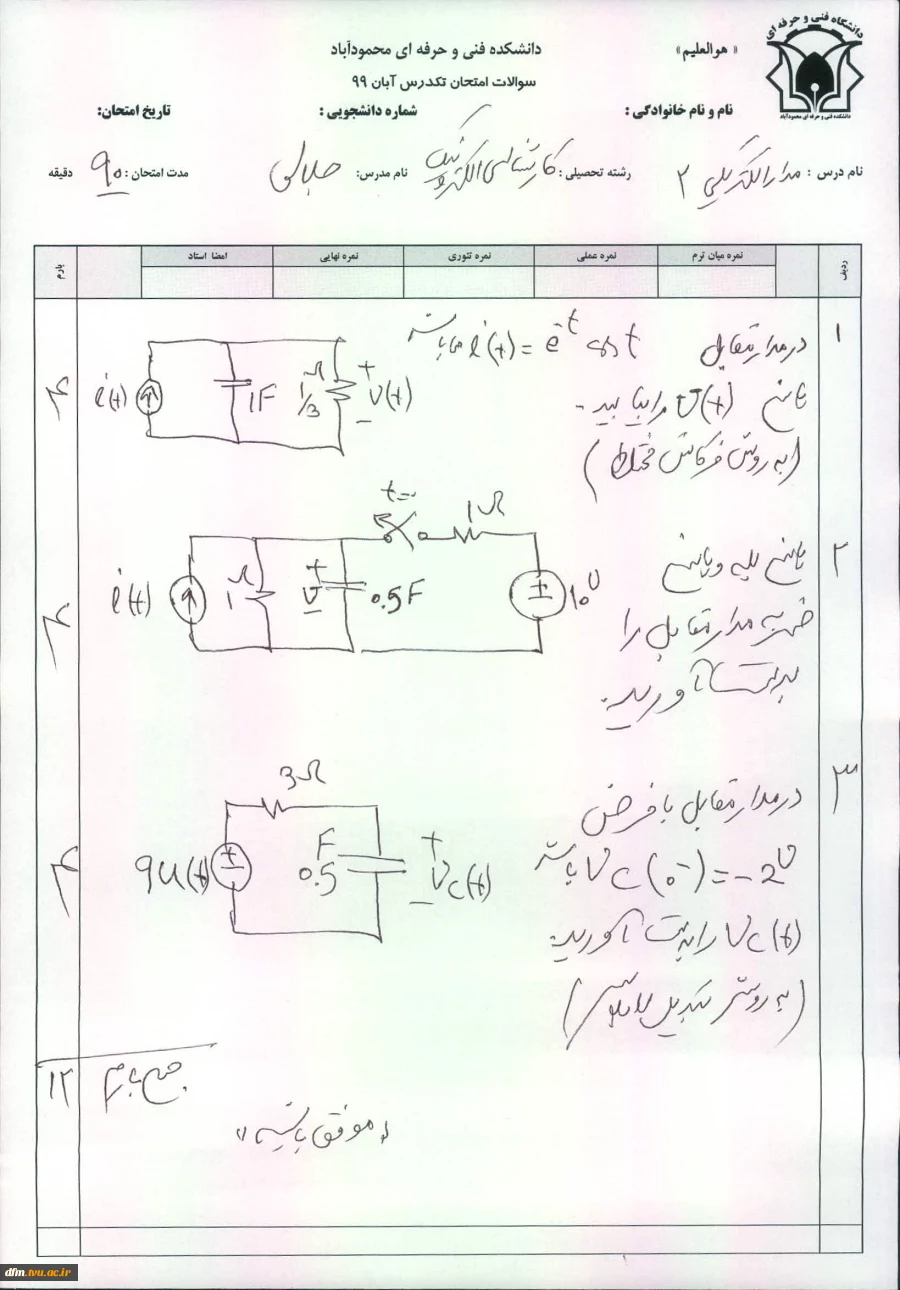 دانشگاه فنی و حرفه ای
دانشکده فنی و حرفه ای محمودآباد
« هوالعلیم»
دانشکده فنی و حرفه ای محمودآباد
سوالات امتحان تکدرس آبان ۹۹
نام و نام خانوادگی :
شماره دانشجویی :
تاریخ امتحان:
نام درس : مدار الکتریکی ۲
رشته تحصیلی : کارشناسی الکترونیک
نام مدرس: جلالی
مدت امتحان : ۹۰ دقیقه
ردیف
نمره میان ترم
نمره عملی
نمره تئوری
نمره نهایی
امضا استاد
بارم
۱
در مدار مقابل i(t) = e^-t cos t می باشد
پاسخ v(t) را بیابید.
(به روش فرکانس مختلط)
i(t)
1F
1/3 Ω
+
v(t)
-
۴
۲
پاسخ پله و پاسخ
ضربه مدار مقابل را
بدست آورید.
t=0
1Ω
i(t)
1 Ω
+
v
-
0.5F
10v
۴
۳
در مدار مقابل با فرض
Vc(0-) = -2v باشد
Vc(t) را بدست آورید.
(به روش تبدیل لاپلاس)
3Ω
9u(t)
F
0.5
+
Vc(t)
-
۴
جمع بارم
۱۲
«موفق باشید»
dfm.tvu.ac.ir